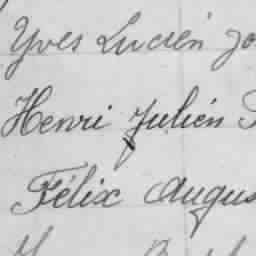 Yves Lucien
Henri Julien
Félix Augus